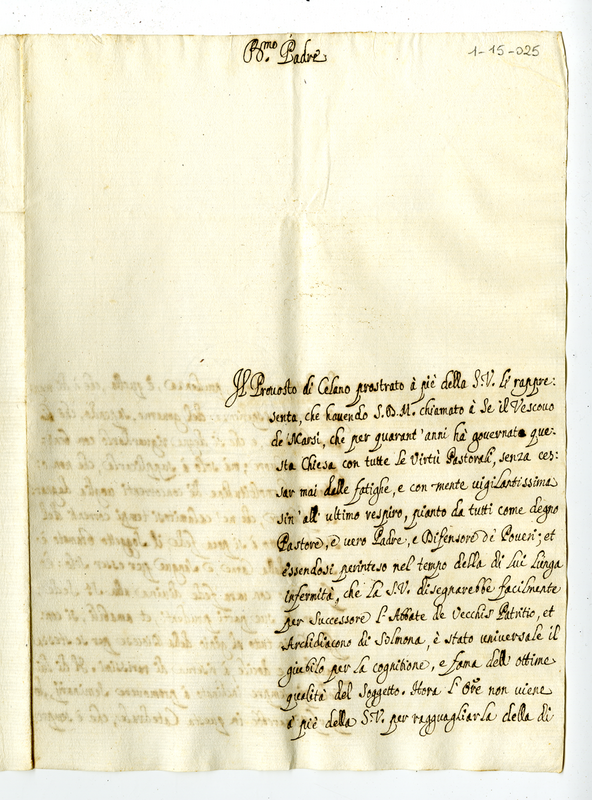 1-15-025
B.mo Padre
Il Prouosto di Celano prostrato à piè della S.V. Le rappre:
senta, che hauendo S.D.M. chiamato à Se il Vescouo
de Marsi, che per quarant'anni ha gouernata que:
sta Chiesa con tutte le Virtù Pastorali, senza ces:
sar mai dalle fatighe, e con mente uigilantissima
sin'all'ultimo respiro, pianto da tutti come degno
Pastore, e uero Padre, e Difensore de Poueri; et
essendosi perinteso nel tempo della di lui lunga
infermità, che la S.V. disegnarebbe facilmente
per Successore l'Abbate de Vecchis Patritio, et
Archidiacono di Solmona, è stato uniuersale il
giubilo per la cognitione, e fama dell'ottime
qualità del Soggetto. Hora l'Ore non uiene
a' piè della S.V. per ragguagliarla della di